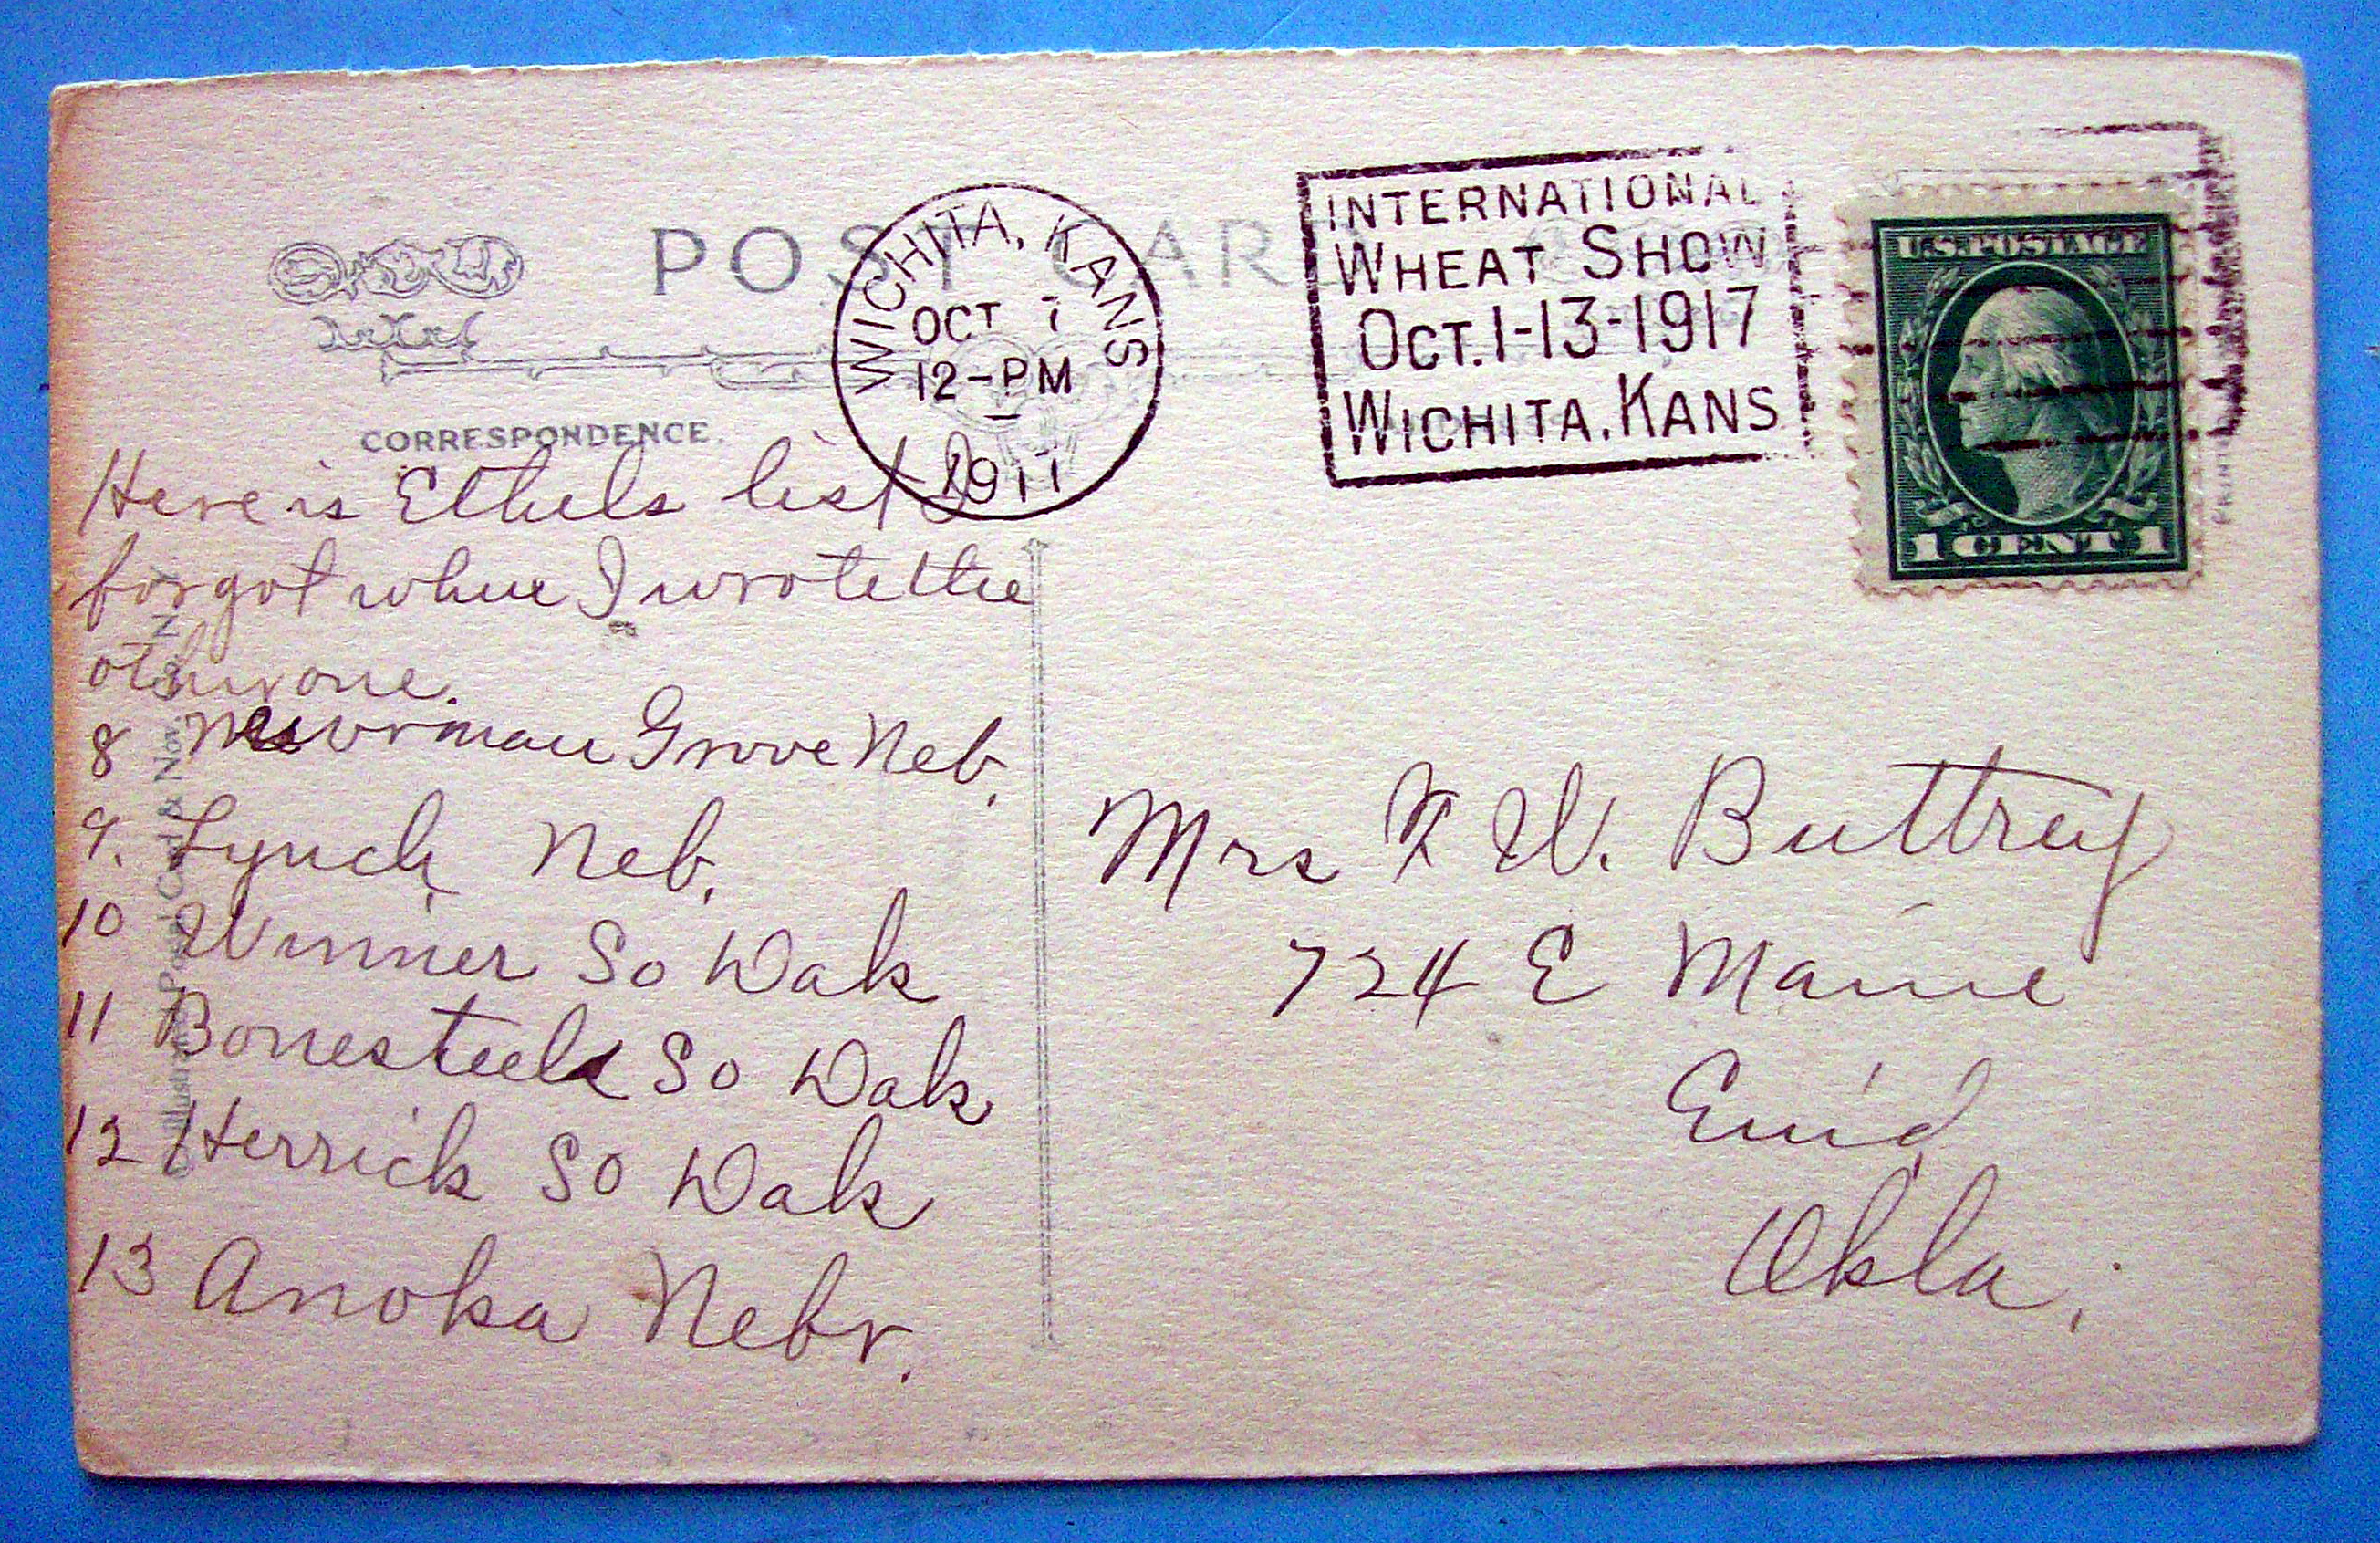 POST CARD
WICHITA, KANS
OCT 7
12-PM
1917
INTERNATIONAL
WHEAT SHOW
OCT. 1-13-1917
WICHITA, KANS
U.S. POSTAGE
1 CENT 1
CORRESPONDENCE.
Here is Ethels list I
forgot when I wrote the
other one.
8 Newman Grove Neb.
9. Lynch, Neb.
10 Winner So Dak
11 Bonesteel So Dak
12 Herrick So Dak
13 Anoka Nebr.
Mrs F W. Buttrey
724 E Maine
Enid
Okla.
Illustrated Postal Card & Nov. Co. N.Y.